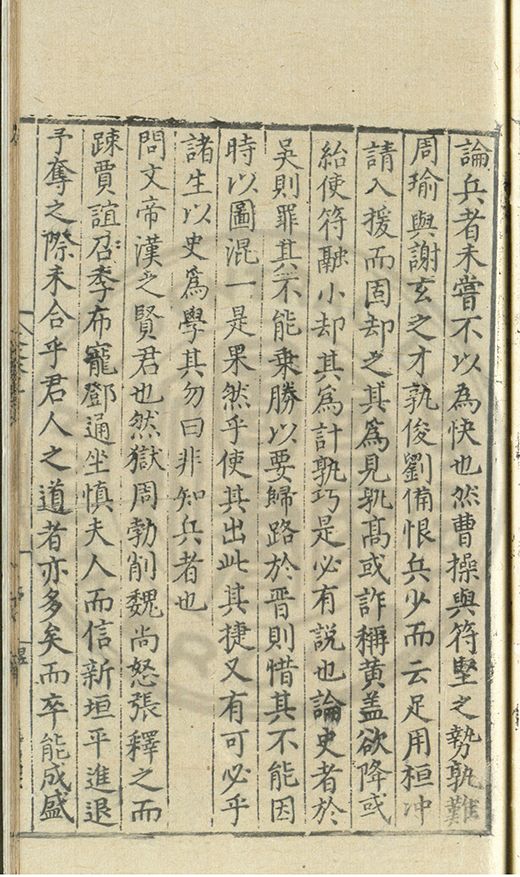 論兵者未嘗不以為快也然曹操與符堅之勢孰難
周瑜與謝玄之才孰俊劉備恨兵少而云足用桓冲
請入援而固却之其為見孰髙或詐稱黄盖欲降或
紿使符融小却其為計孰巧是必有説也論史者於
吳則罪其不能乗勝以要歸路於晋則惜其不能因
時以圖混一是果然乎使其出此其捷又有可必乎
諸生以史為學其勿曰非知兵者也
問文帝漢之賢君也然獄周勃削魏尚怒張釋之而
踈賈誼召季布寵鄧通坐慎夫人而信新垣平進退
予奪之際未合乎君人之道者亦多矣而卒能成盛